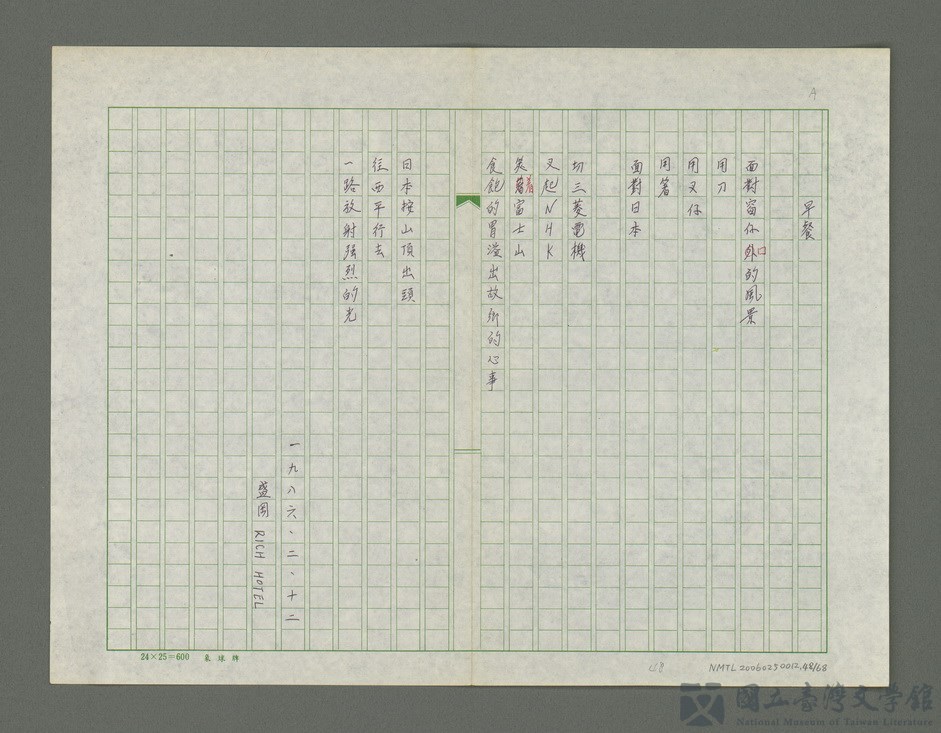 A
早餐
面對窗仔外口的風景
用刀
用叉仔
用箸
面對日本
切三菱電機
叉起NHK
夾著富士山
食飽的胃溢出故鄉的心事
日本按山頂出頭
往西平行去
一路放射强烈的光
一九八六、二、十二
盛岡 RICH HOTEL
24×25=600 象球牌
NMTL20060250012,48/68
國立臺灣文學館
National Museum of Taiwan Literature